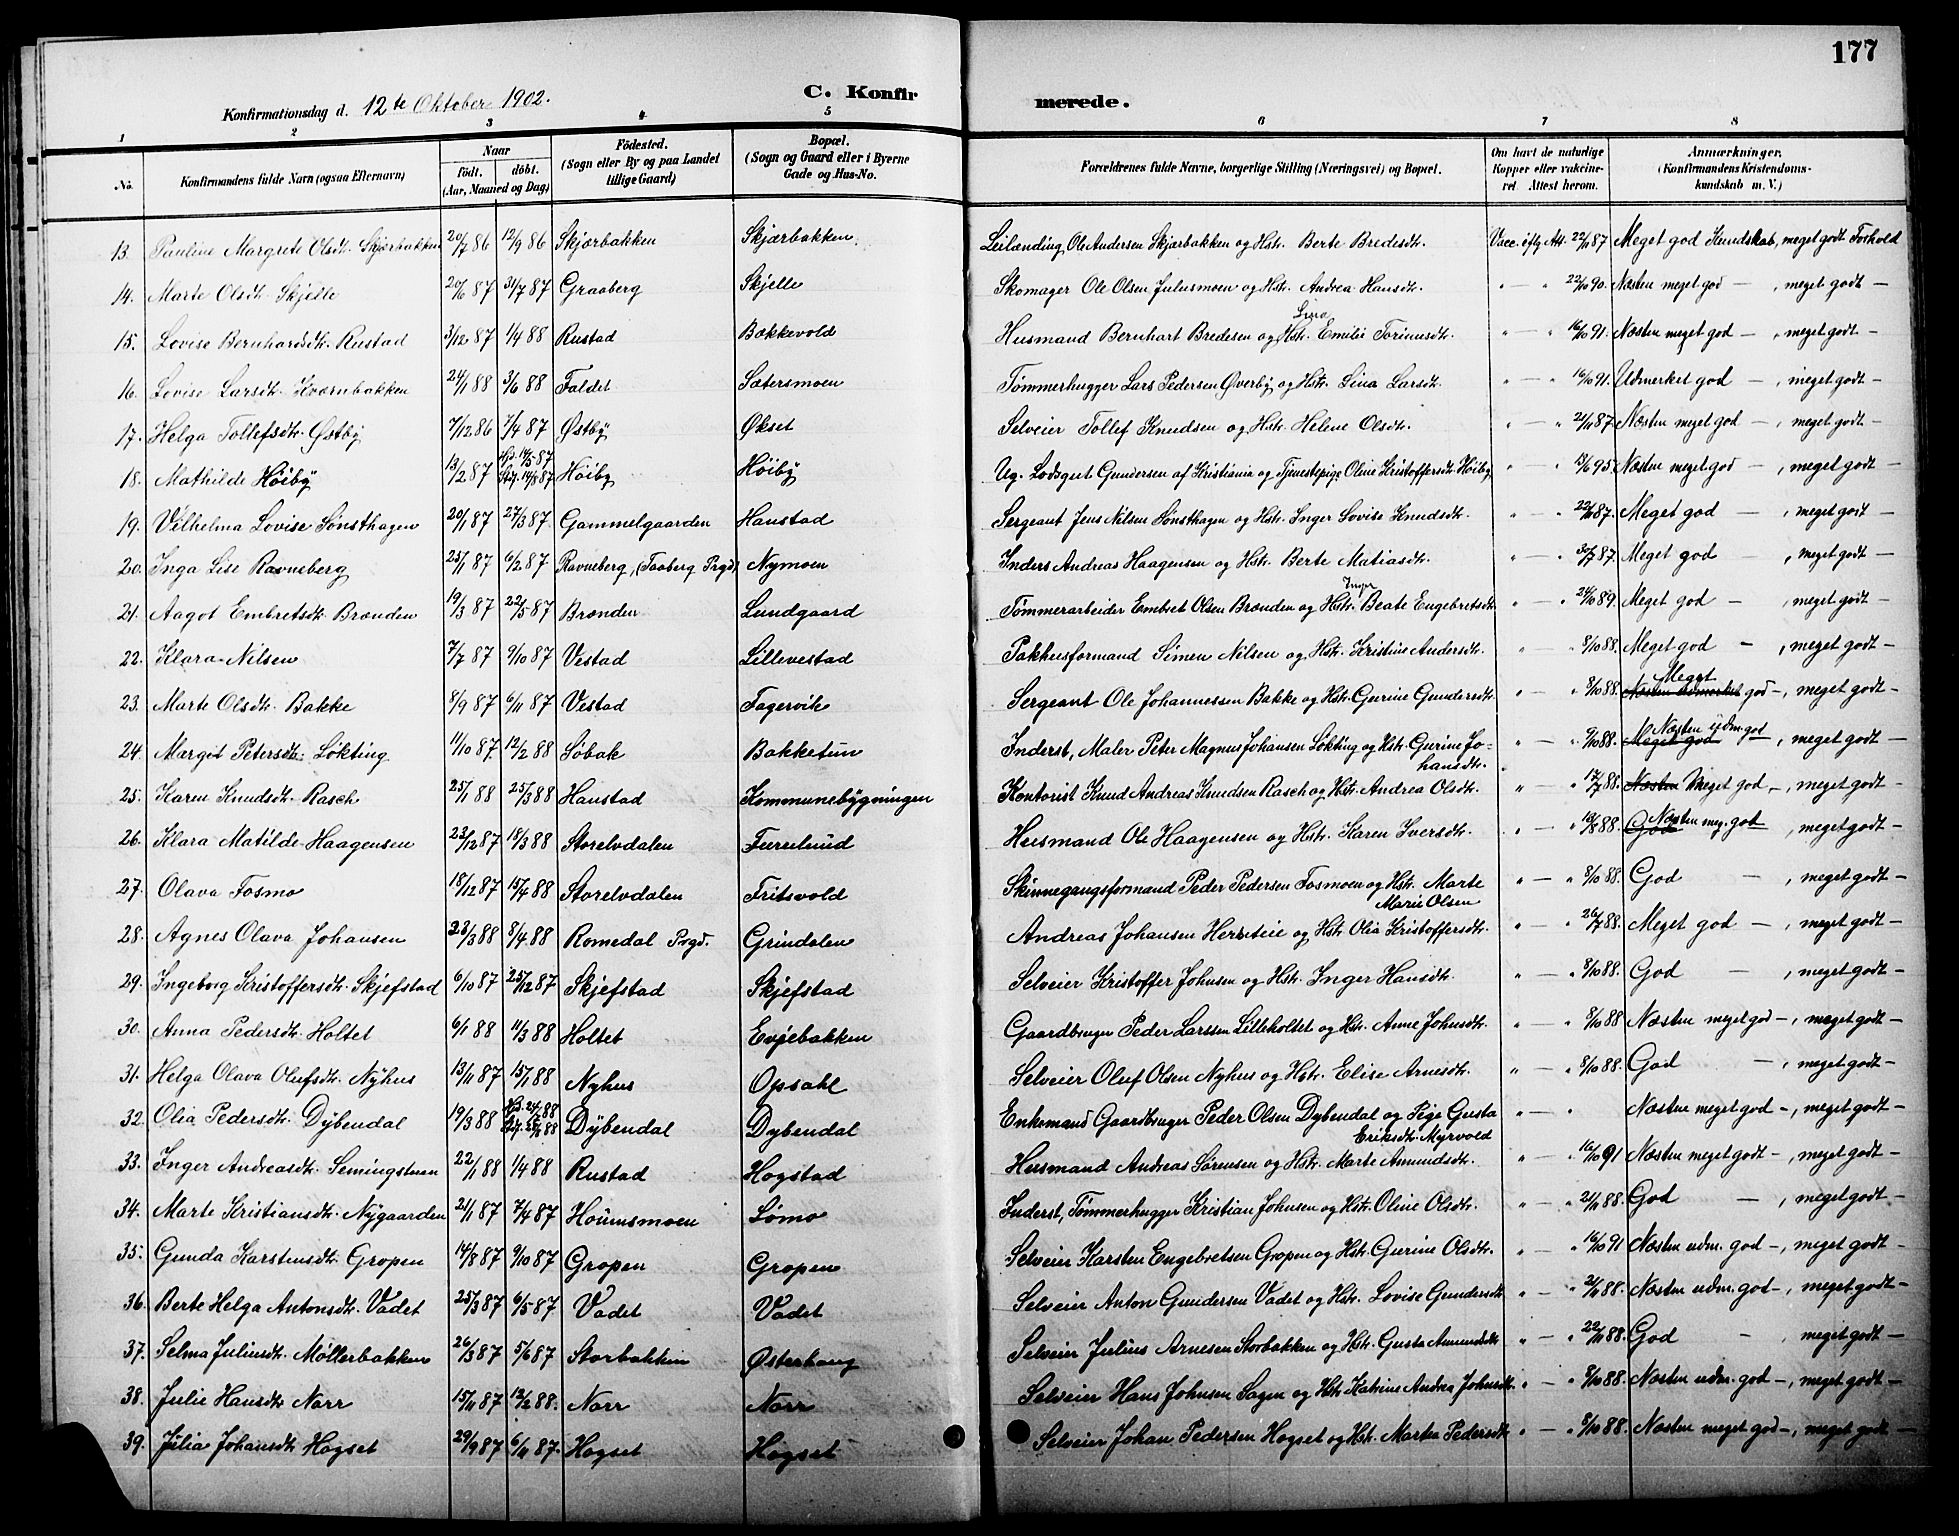 177
Konfirmationsdag d. 12te Oktober 1902.
C. Konfirmerede.
1 2 3 4 5 6 7 8
No. Konfirmandens fulde Navn (ogsaa Efternavn) Naar født. døbt. (Aar, Maaned og Dag) Fødested. (Sogn eller By og paa Landet lillige Gaard) Bopæl. (Sogn og Gaard eller i Byerne Gade og Hus-No. Forældrenes fulde Navne, borgerlige Stilling (Næringsvei) og Bopæl. Om havt de naturlige Kopper eller vakcineret Attest herom. Anmærkninger. (Konfirmandens Kristendomskundskab m. V.)
13. Pauline Margrete Olsdtr. Skjærbakken 20/7 86 12/9 86 Skjærbakken Skjærbakken Leilænding Ole Andersen Skjærbakken og Hstr. Berte Bredesdtr. Vacc. iflg Att. 22/11 87 Meget god Kundskab, meget godt Forhold
14. Marte Olsdtr. Skjelle 20/6 87 31/7 87 Graaberg Skjelle Skomager Ole Olsen Juliusmoen og Hstr. Andrea Hansdtr. " — " 22/10 90. Næsten meget god — , meget godt —
15. Lovise Bernhardsdtr. Rustad 3/12 87 1/4 88 Rustad Bakkevold Husmand Bernhart Bredesen og Hstr. Lina Emilie Torinusdtr. " — " 16/10 91. Næsten meget god — , meget godt —
16. Lovise Larsdtr. Kværnbakken 24/1 88 3/6 88 Faldet Sætersmoen Tømmerhugger Lars Pedersen Øverby og Hstr. Lina Larsdtr. " — " 16/10 91. Udmerket god — , meget godt —
17. Helga Tollefsdtr. Østby 7/12 86 7/4 87 Østby Økset Selveier Tollef Knudsen og Hstr. Helene Olsdtr. " — " 21/11 87. Næsten meget god — , meget godt —
18. Mathilde Høiby 13/2 87 Høiby Høiby Ug. Lodsgut Gundersen af Kristiania og Tjenestepige Oline Kristoffersdtr. Høiby " — " 18/6 95. Næsten meget god — , meget godt —
19. Vilhelma Lovise Sønsthagen 20/1 87 27/3 87. Gammelgaarden Hanstad Sergeant Jens Nilsen Sønsthagen og Hstr. Inger Lovise Knudsdtr. " — " 22/11 87. Meget god — , meget godt —
20. Inga Lise Ravneberg 25/1 87 6/2 87 Ravneberg, (Faaberg Prgd.) Nymoen Inders Andreas Haagensen og Hstr. Berte Matiasdtr. " — " 30/7 87. Meget god — , meget godt —
21. Aagot Embretsdtr. Brænden 19/3 87 22/5 87 Brænden Lundgaard Tømmerarbeider Embret Olsen Brænden og Hstr. Inger Beate Engebretsdtr. " — " 24/10 89. Meget god — , meget godt —
22. Klara Nilsen 7/7 87 9/10 87 Vestad Lillevestad Pakhusformand Simen Nilsen og Hstr. Kristine Andersdtr. " — " 8/10 88. Meget god — , meget godt —
23. Marte Olsdtr. Bakke 8/9 87 6/11 87 Vestad Fagervik Sergeant Ole Johannessen Bakke og Hstr. Gurine Gundersdtr. " — " 8/10 88. Næsten udmerket Meget god —, meget godt —
24. Margot Petersdtr. Løkting 11/10 87. 12/2 88 Søbak Bakketun Inderst, Maler Peter Magnus Johansen Løkting og Hstr. Gurine Johansdtr. " — " 9/10 88. Meget god Næsten udm. god — , meget godt —
25. Karen Knudsdtr. Rasch 25/1 88 25/3 88 Hanstad Kommunebygningen Kontorist Knud Andreas Knudsen Rasch og Hstr. Andrea Olsdtr. " — " 17/7 88. Næsten Meget god —, meget godt —
26. Klara Matilde Haagensen 23/12 87 18/3 88 Storelvdalen Furulund Husmand Ole Haagensen og Hstr. Karen Iversdtr. " — " 19/8 88. God Næsten meg. god — , meget godt —
27. Olava Fosmo 18/12 87 15/4 88 Storelvdalen Fritsvold Skinnegangsformand Peder Pedersen Fosmoen og Hstr. Marte Marie Olsen " — " 8/10 88. God — , meget godt —
28. Agnes Olava Johansen 23/3 88 8/4 88 Romedal Prgd. Grindalen Andreas Johansen Hersteie og Hstr. Olia Kristoffersdtr. " — " 26/7 88. Meget god — , meget godt —
29. Ingeborg Kristoffersdtr. Skjefstad 6/10 87 25/12 87 Skjefstad Skjefstad Selveier Kristoffer Johnsen og Hstr. Inger Hansdtr. " — " 8/10 88. God — , meget godt —
30. Anna Pedersdtr. Holtet 6/1 88 11/3 88 Holtet Evjebakken Gaardbruger Peder Larssen Lilleholtet og Hstr. Anne Johnsdtr. " — " 8/10 88 Næsten meget god —, meget godt —
31. Helga Olava Olufsdtr. Nyhus 13/11 87 15/1 88 Nyhus Opsahl Selveier Oluf Olsen Nyhus og Hstr. Elise Arnesdtr. " — " 8/10 88. God — , meget godt —
32. Olia Pedersdtr. Dybendal 19/3 88 Dybendal Dybendal Enkemand Gaardbruger Peder Olsen Dybendal og Pige Gusta Eriksdtr. Myrvold " — " Næsten meget god —, meget godt —
33. Inger Andreasdtr. Semingstuen 22/1 88 1/4 88 Rustad Hogstad Husmand Andreas Sørensen og Hstr. Marte Amundsdtr. " — " 16/10 91 Næsten meget godt —, meget godt —
34. Marte Kristiansdtr. Nygaarden 21/1 87 7/4 87 Hournsmoen Lømo Inderst, Tømmerhugger Kristian Johnsen og Hstr. Oline Olsdtr. " — " 21/11 88. God — , meget godt —
35. Gunda Karstensdtr. Gropen 14/8 87 9/10 87 Gropen Gropen Selveier Karsten Engebretsen Gropen og Hstr. Gurine Olsdtr. " — " 16/10 91 Næsten udm. god —, meget godt —
36. Berte Helga Antonsdtr. Vadet 25/3 87 6/5 87 Vadet Vadet Selveier Anton Gundersen Vadet og Hstr. Lovise Gundersdtr. " — " 21/11 88. Næsten udm. god —, meget godt —
37. Selma Juliusdtr. Møllerbakken 26/3 87 5/6 87 Storbakken Østerhaug Selveier Julius Arnesen Storbakken og Hstr. Gusta Amundsdtr. " — " 22/11 88. God — , meget godt —
38. Julie Hansdtr. Norr 15/11 87 12/2 88. Norr Norr Selveier Hans Johnsen Sagen og Hstr. Katrine Andrea Johnsdtr. " — " 8/10 88. Næsten udm. god —, meget godt —
39. Julia Johansdtr. Hogset 29/9 87 6/11 87. Hogset Hogset Selveier Johan Pedersen Hogset og Hstr. Martea Pedersdtr. " — " 8/10 88. Næsten meget god —, meget godt